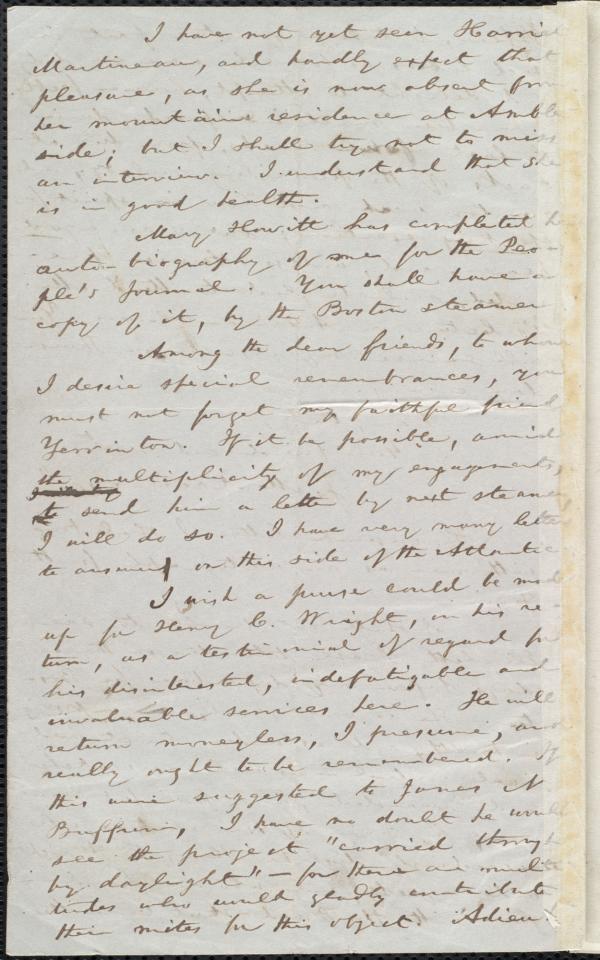 I have not yet seen Harriet
Martineau, and hardly expect that
pleasure, as she is now absent from
her mountain residence at Amble
side; but I shall try not to miss
an interview. I understand that she
is in good health.
Mary Howitt has completed h
auto-biography of me for the Peo-
ple's Journal. You shall have a
copy of it, by the Boston steamer
Among the dear friends, to whom
I desire special remembrances, you
must not forget my faithful friend
Yerrinton. If it be possible, amid
the multiplicity of my engagements,
to send him a letter by next steamer,
I will do so. I have very many lette
to answer on this side of the Atlantic
I wish a purse could be made
up for Henry C. Wright, on his re-
turn, as a testimonial of regard for
his disinterested, indefatigable and
invaluable services here. He will
return moneyless, I presume, and
really ought to be remembered. If
this were suggested to James N.
Buffum, I have no doubt he would
see the project "carried through
by daylight" — for there are multi
tudes who would gladly contribute
their mites for this object. Adieu!